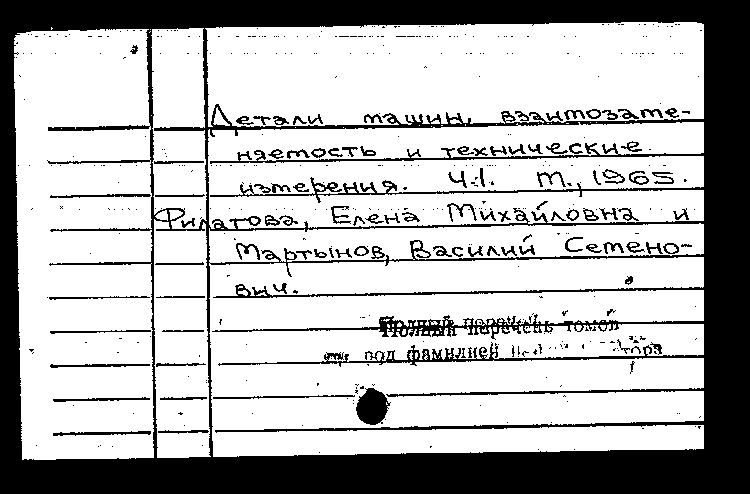 Детали машин, взаимозаме-
няемость и технические
измерения. Ч.1. М., 1965.
Филатова, Елена Михайловна и
Мартынов, Василий Семено-
вич.
Полный перечень томов
под фамилией